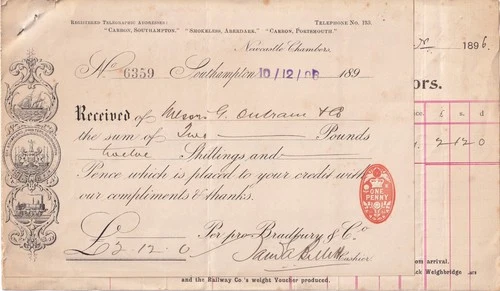 Registered Telegraphic Addresses: Telephone No. 193.
"Carbon, Southampton." "Smokeless, Aberdare." "Carbon, Portsmouth."
Newcastle Chambers,
No 6359 Southampton 10/12/96 189
Received of Messrs G. Outram & Co
the sum of Two Pounds
twelve Shillings, and
Pence which is placed to your credit with
our compliments & thanks.
ONE PENNY
£2-12.0 Per pro Bradbury & Co.
Cashier
and the Railway Co.'s weight Voucher produced.
1896
ors.
ce. £ s. d.
2 12 0
on arrival.
ck Weighbridge